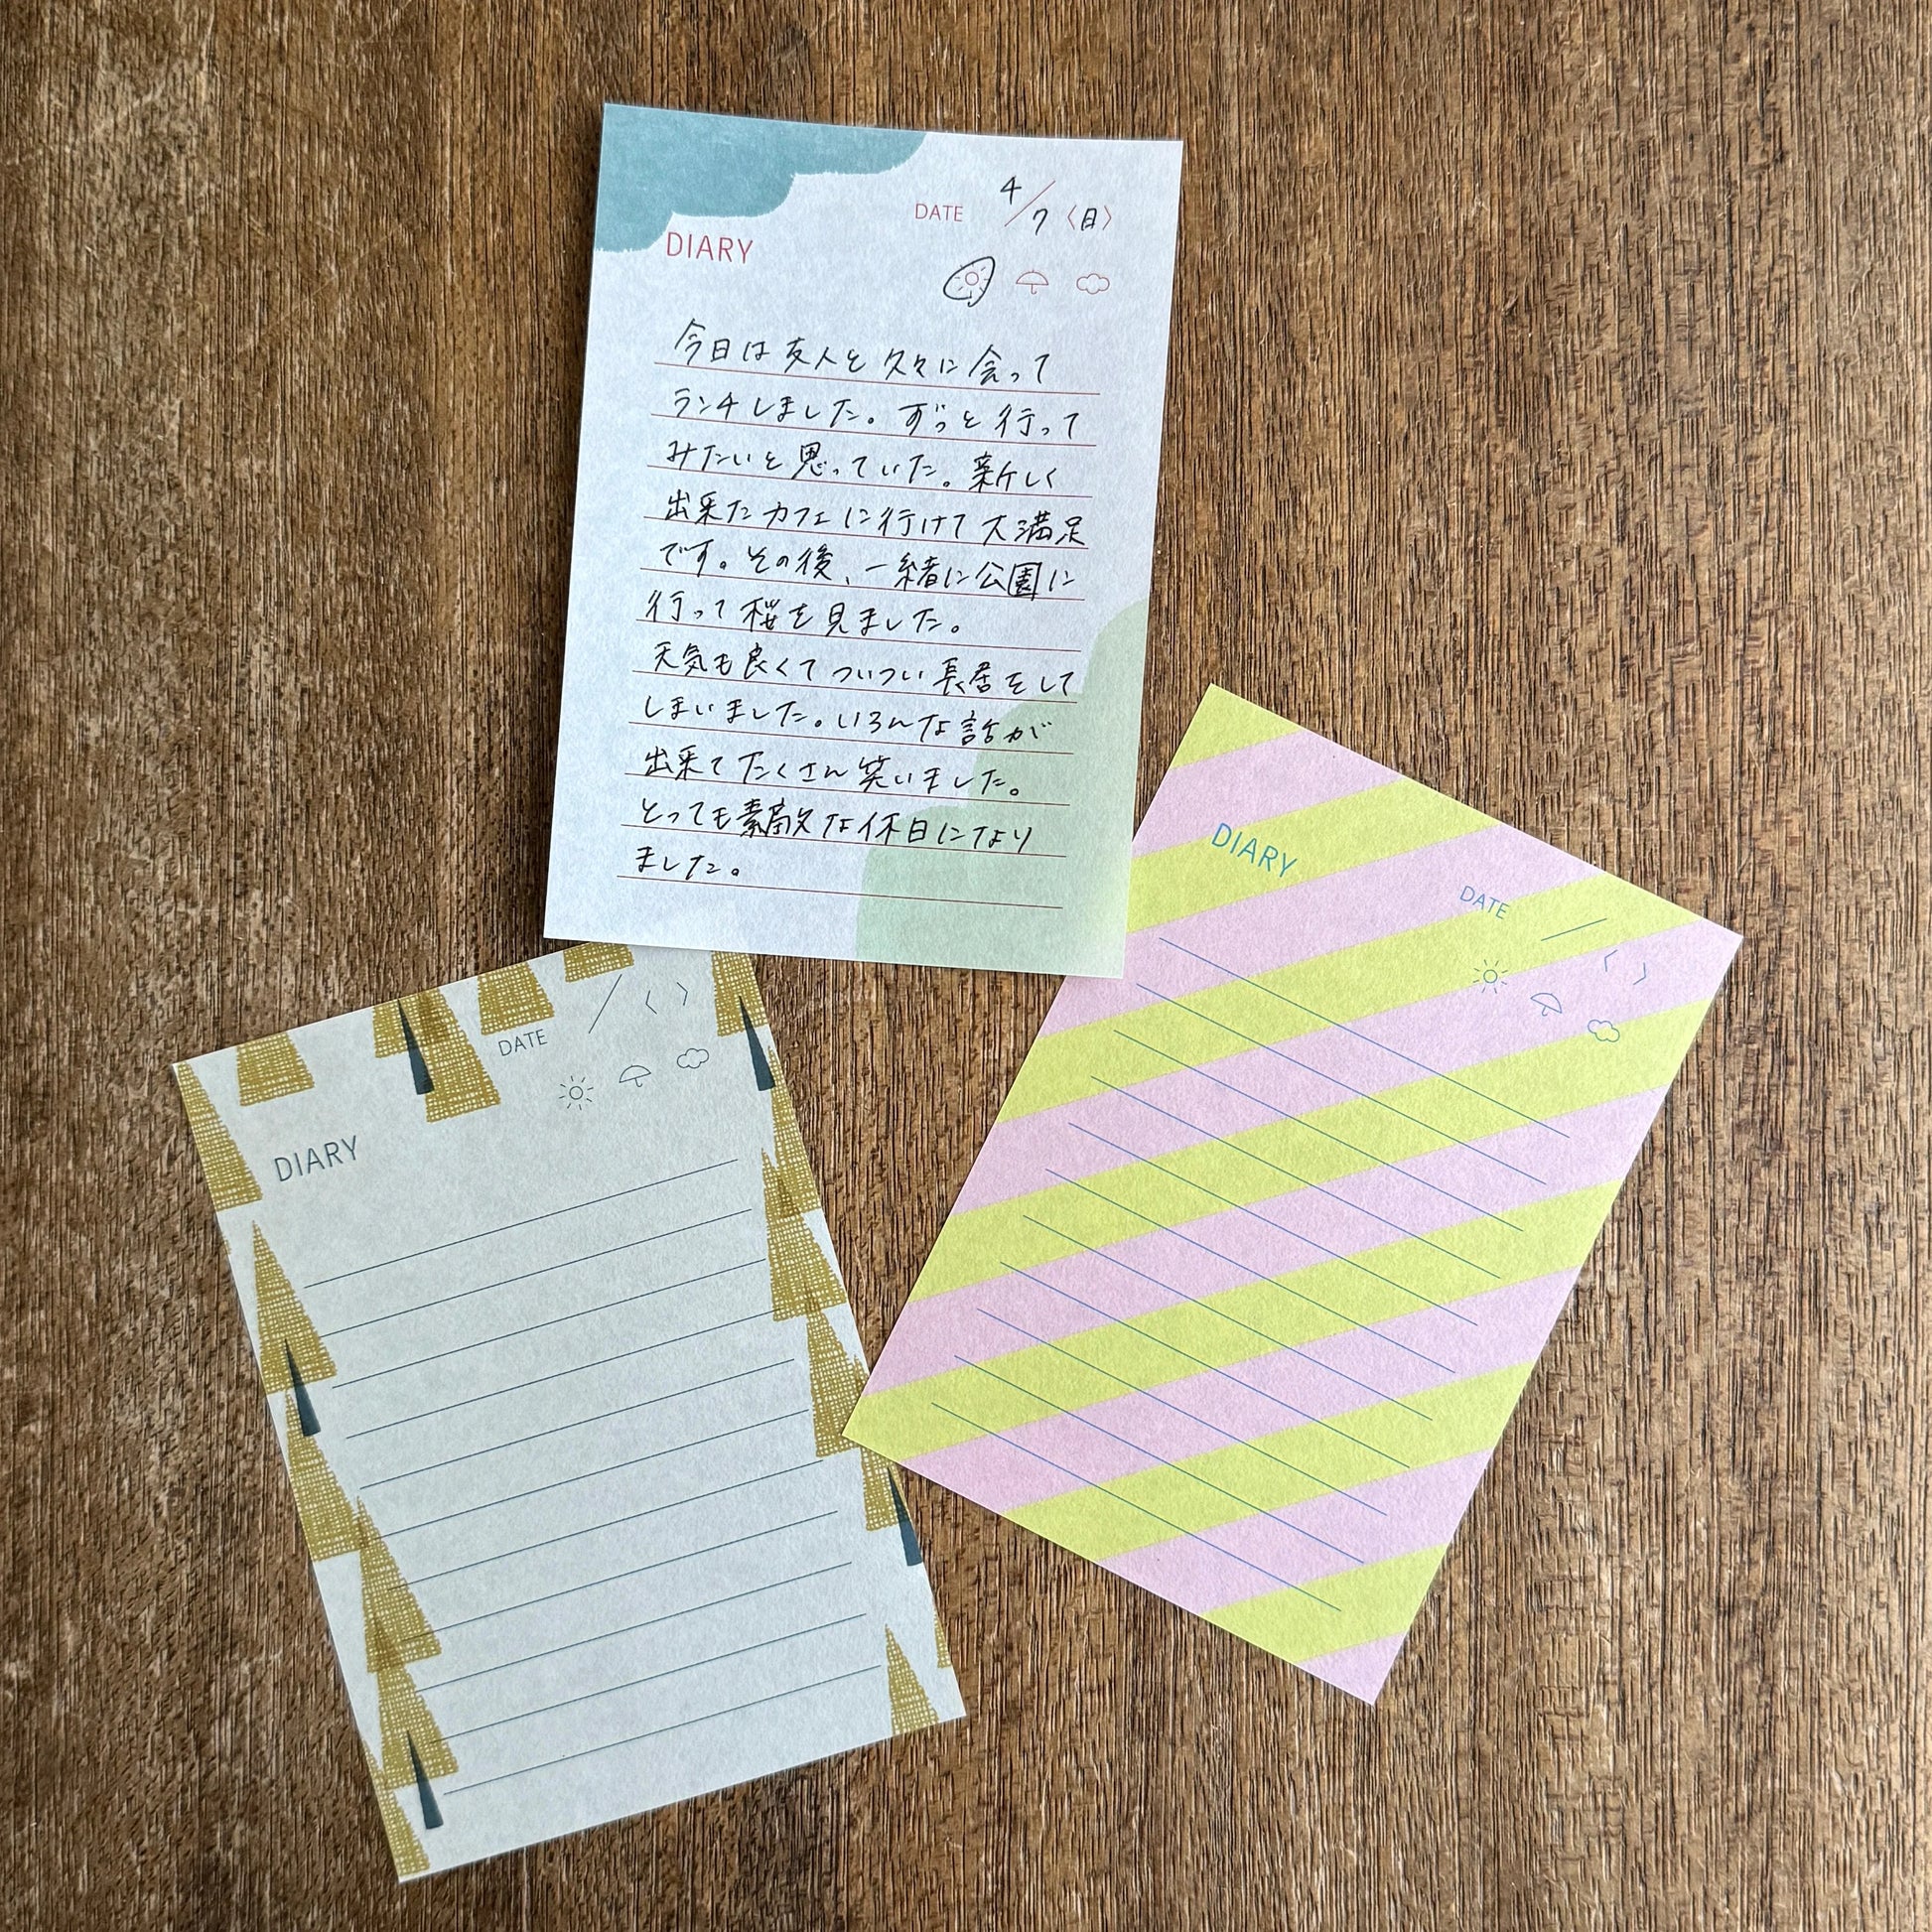 DIARY
DATE 4/7〈日〉
今日は友人と久々に会って
ランチしました。ずっと行って
みたいと思っていた。新しく
出来たカフェに行けて大満足
です。その後、一緒に公園に
行って桜を見ました。
天気も良くてついつい長居をして
しまいました。いろんな話が
出来てたくさん笑いました。
とっても素敵な休日になり
ました。
DIARY
DATE / 〈 〉
DIARY
DATE / 〈 〉